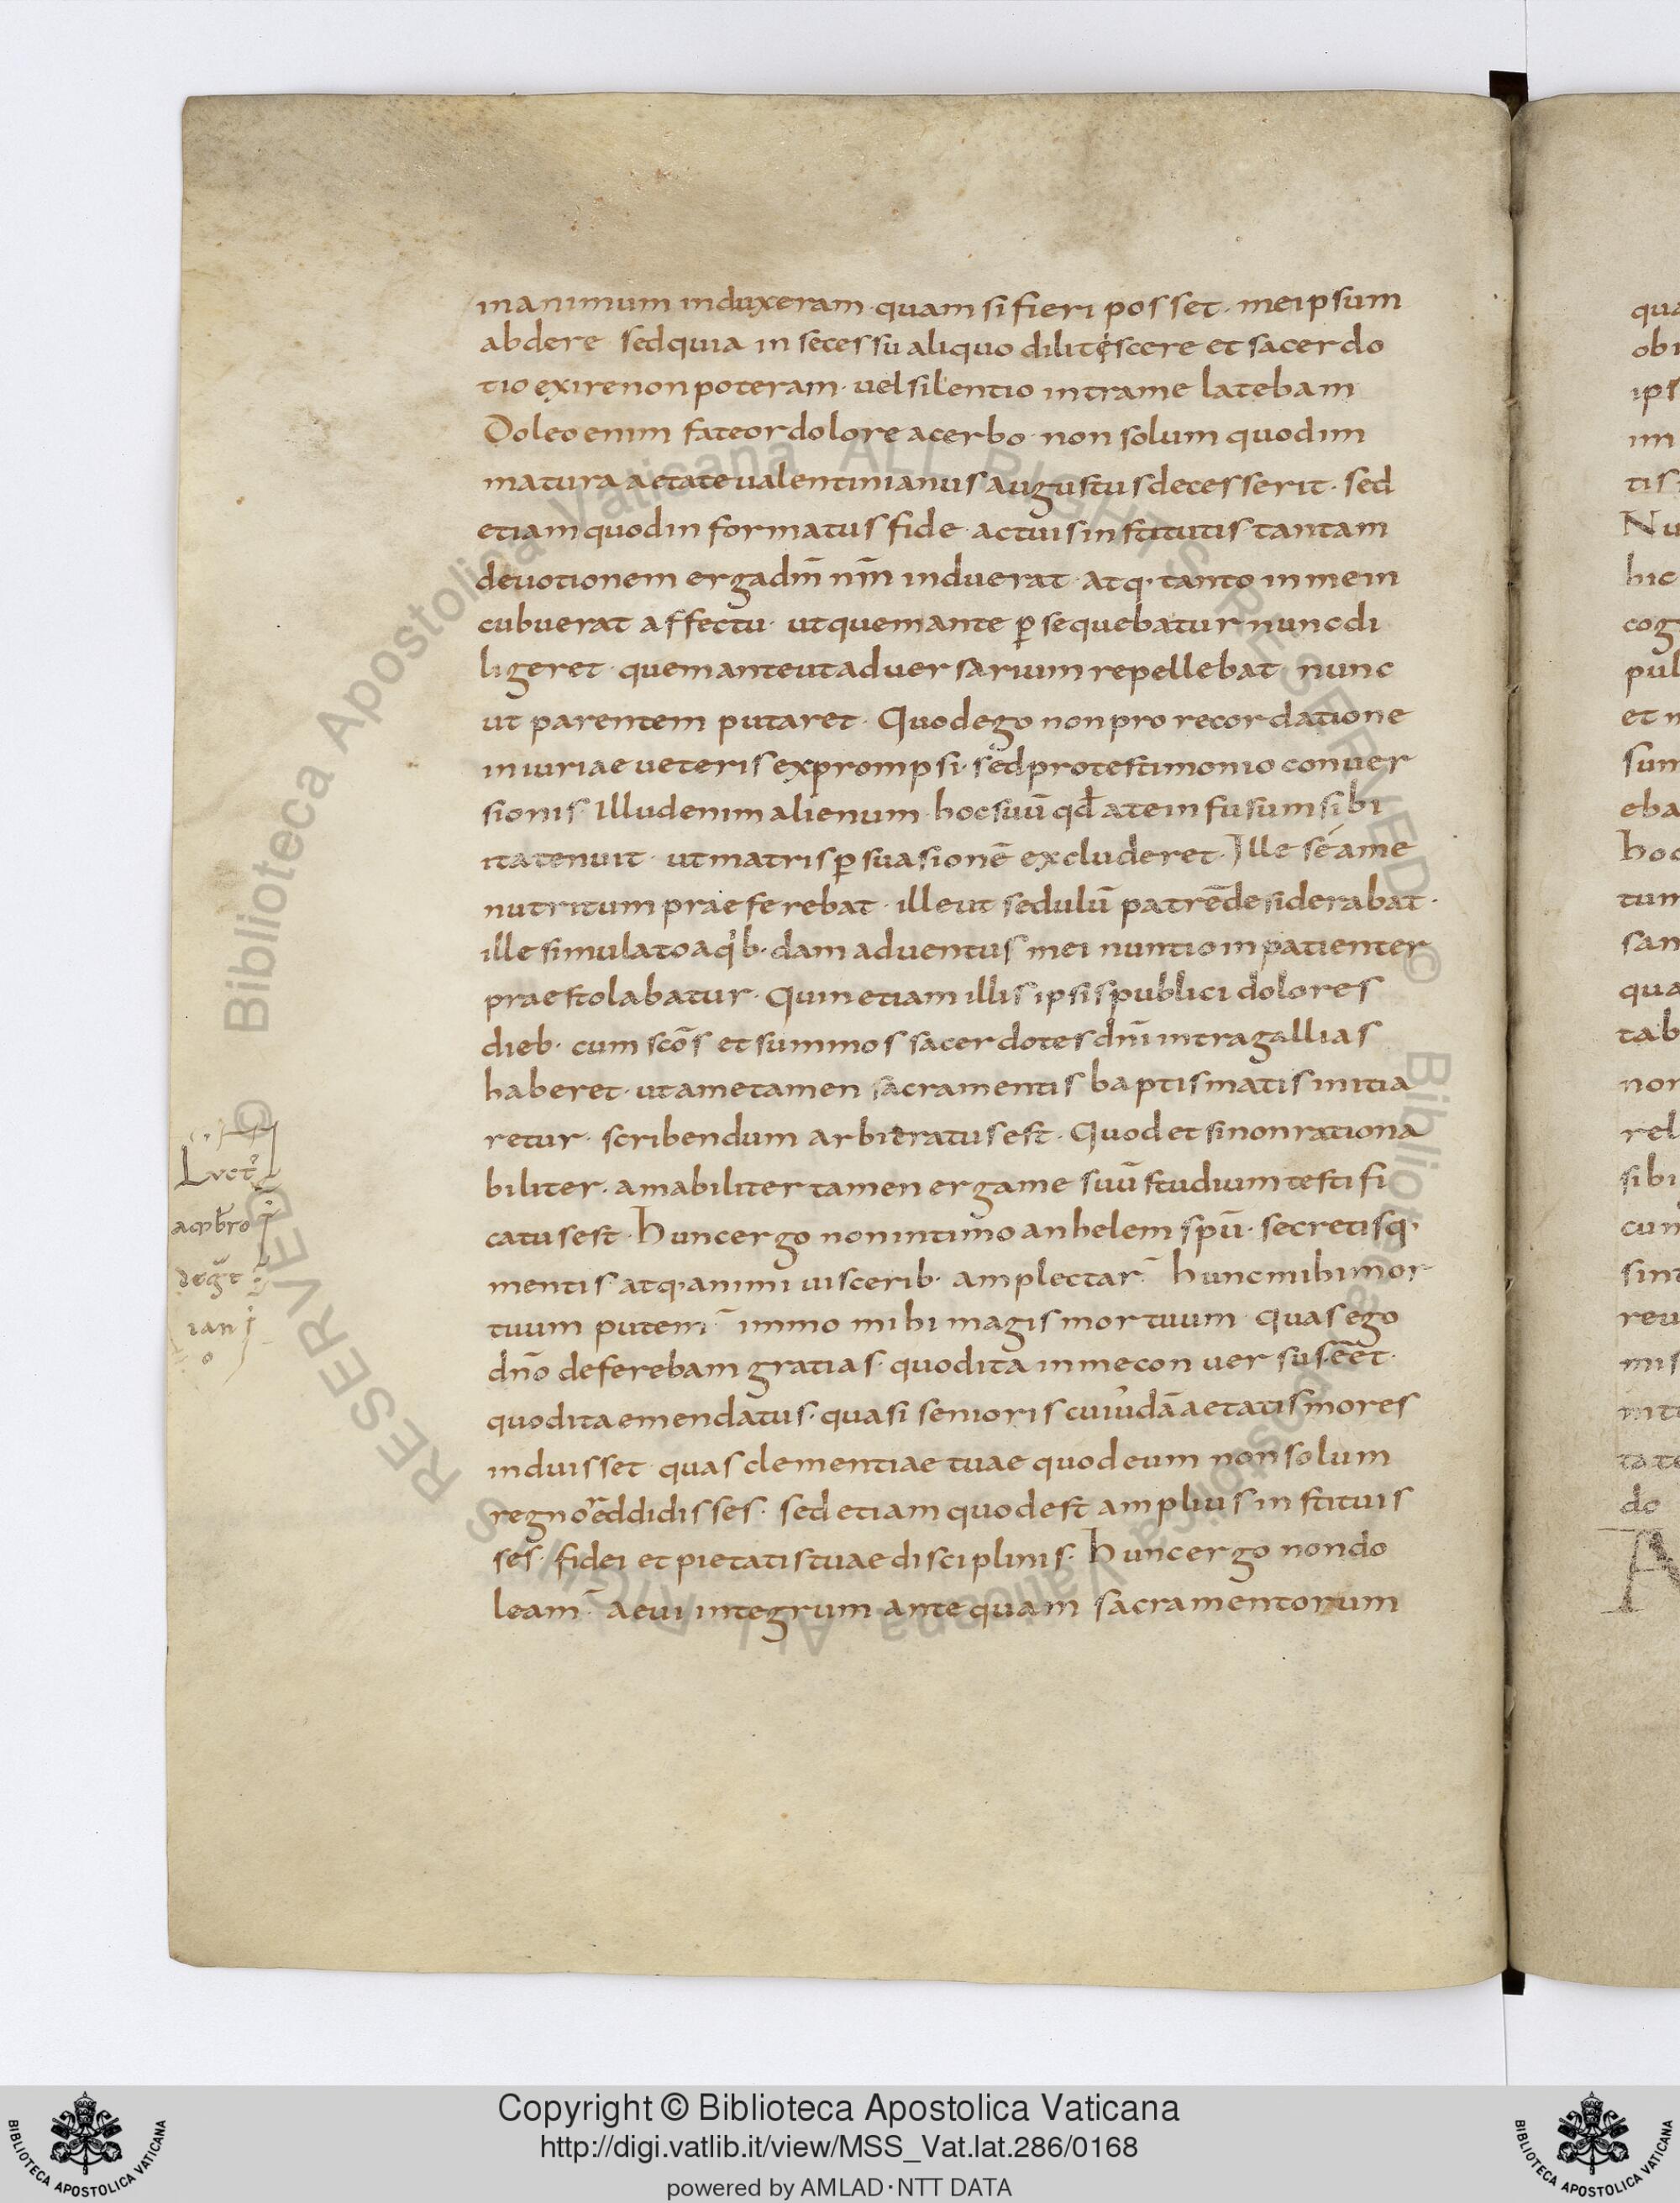 in animum induxeram · quam si fieri posset · me ipsum
abdere sed quia in secessu aliquo dilitescere et sacerdo
tio exire non poteram · uel silentio intra me latebam
Doleo enim fateor dolore acerbo · non solum quod im
matura aetate ualentinianus augustus decesserit · sed
etiam quod in formatus fide · ac tuis institutis tantam
deuotionem erga dn̄m nr̄m induerat · atq· tanto in me in
cubuerat affectu · ut quem ante ꝑsequebatur nunc di
ligeret · quem ante ut aduersarium repellebat nunc
ut parentem putaret · Quod ego non pro recordatione
iniuriae ueteris expromp si · sed pro testimonio conuer
sionis · Illud enim alienum · hoc suū qd̄ a te infusum sibi
ita tenuit · ut matris ꝑsuasionē excluderet · Ille se a me
nutritum praeferebat · ille ut sedulū patrē desiderabat ·
ille simulato a qib· dam aduentus mei nuntio inpatienter
praestolabatur · Quin etiam illis ipsis publici dolores
dieb· cum sc̄os et summos sacerdotes dn̄i intra gallias
haberet · ut a me tamen sacramentis baptismatis initia
retur · scribendum arbitratus est · Quod etsi non rationa
biliter · amabiliter tamen erga me suū studium testifi
catus est · Hunc ergo non intimo anhelem sp̄u · secretisq·
mentis atq· animi uiscerib· amplectar · hunc mihi mor
tuum putem · immo mihi magis mortuum quas ego
dn̄o deferebam gratias · quod ita in me conuersus eēt ·
quod ita emendatus · quasi senioris cuiusdā aetatis mores
induisset quas clementiae tuae quod eum non solum
regno reddidisses · sed etiam quod est amplius instituis
ses · fidei et pietatis tuae disciplinis · Hunc ergo non do
leam · aeui integrum ante quam sacramentorum
Luct
ambro
ian
qua
obi
ips
im
tis
Nu
hic
cog
pul
et
sum
eba
hoc
tum
san
qua
tab
non
rel
sibi
cum
sint
reu
mis
ta te
do
A
© Biblioteca Apostolica Vaticana ALL RIGHTS RESERVED © Biblioteca Apostolica Vaticana ALL RIGHTS RESERVED
Copyright © Biblioteca Apostolica Vaticana
http://digi.vatlib.it/view/MSS_Vat.lat.286/0168
powered by AMLAD·NTT DATA
BIBLIOTECA APOSTOLICA VATICANA
BIBLIOTECA APOSTOLICA VATICANA